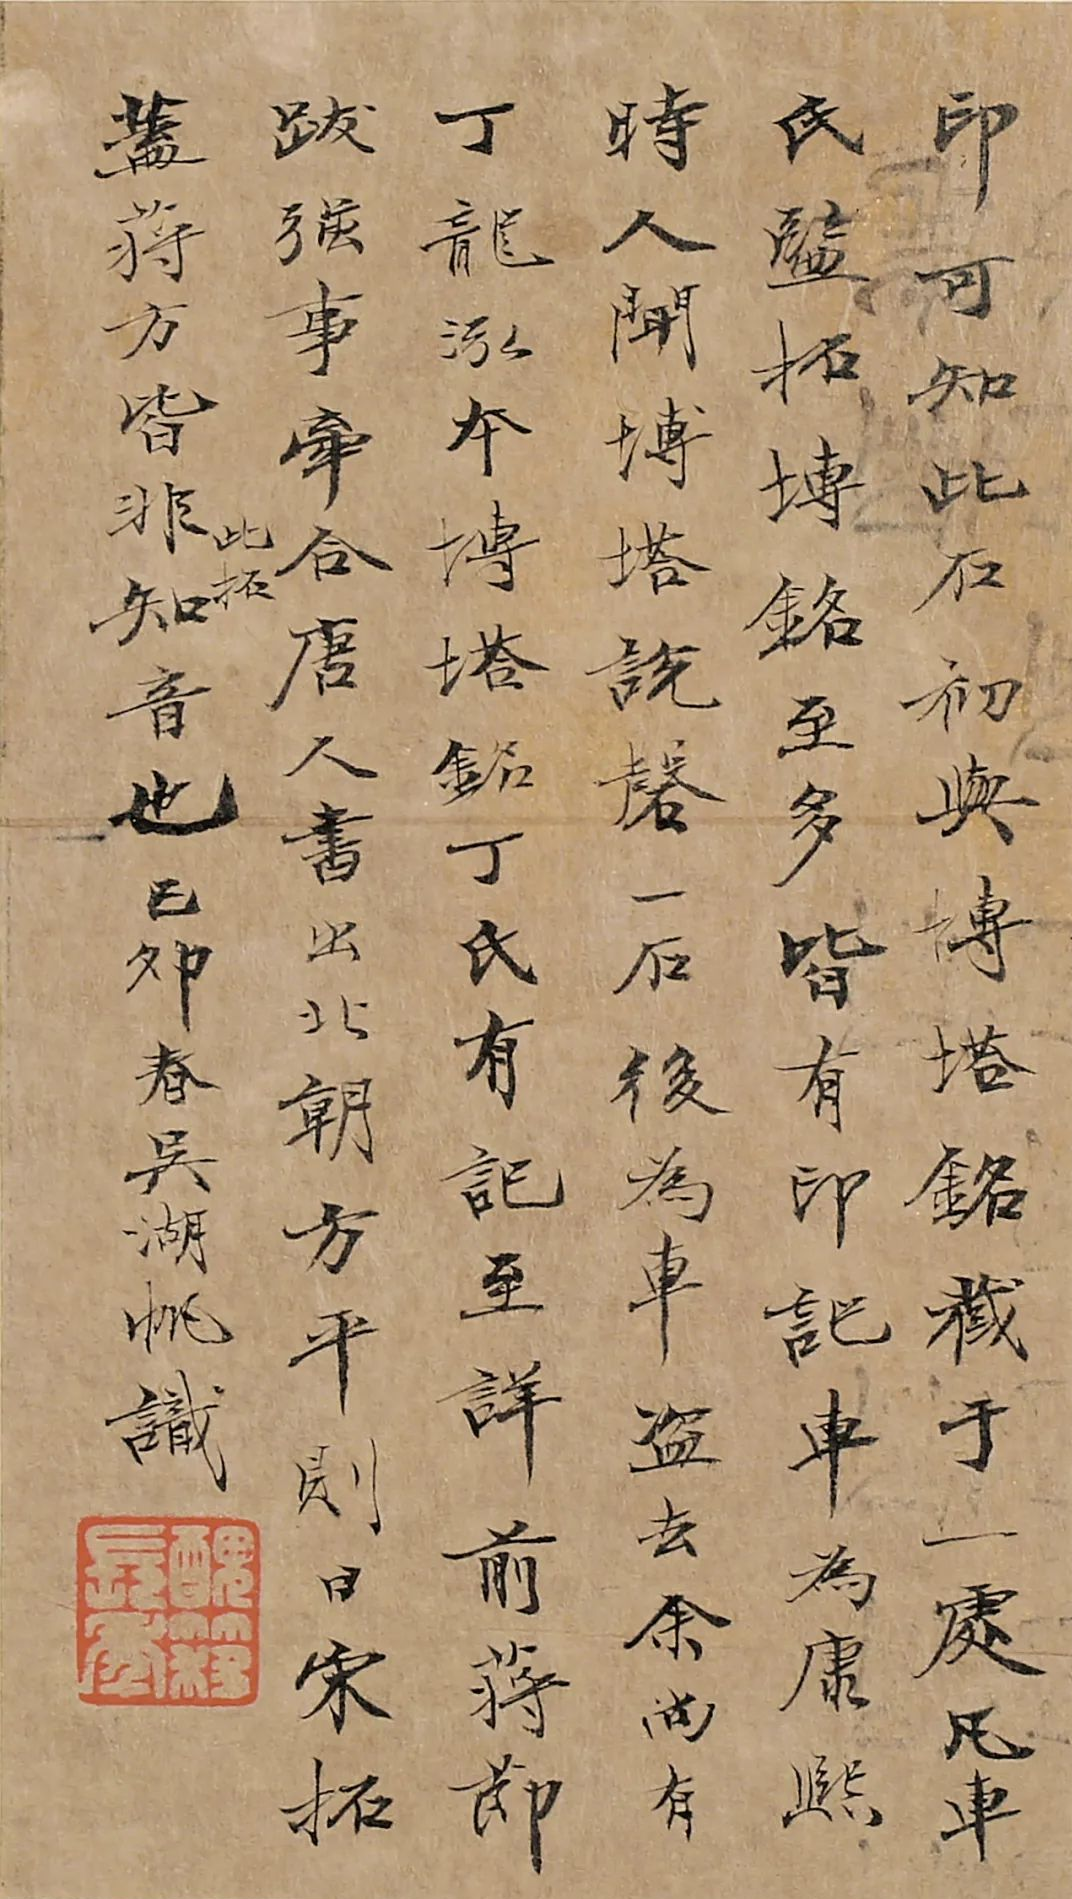 印可知此石初與塼塔銘藏于一處凡車
氏監拓塼銘至多皆有印記車為康熙
時人聞塼塔說磬一石後為車盜去余尚有
丁龍泓本塼塔銘丁氏有記至詳前蔣節
跋強事牽合唐人書出北朝方平則曰宋拓
蓋蔣方皆非知音也己卯春吳湖帆識
此拓